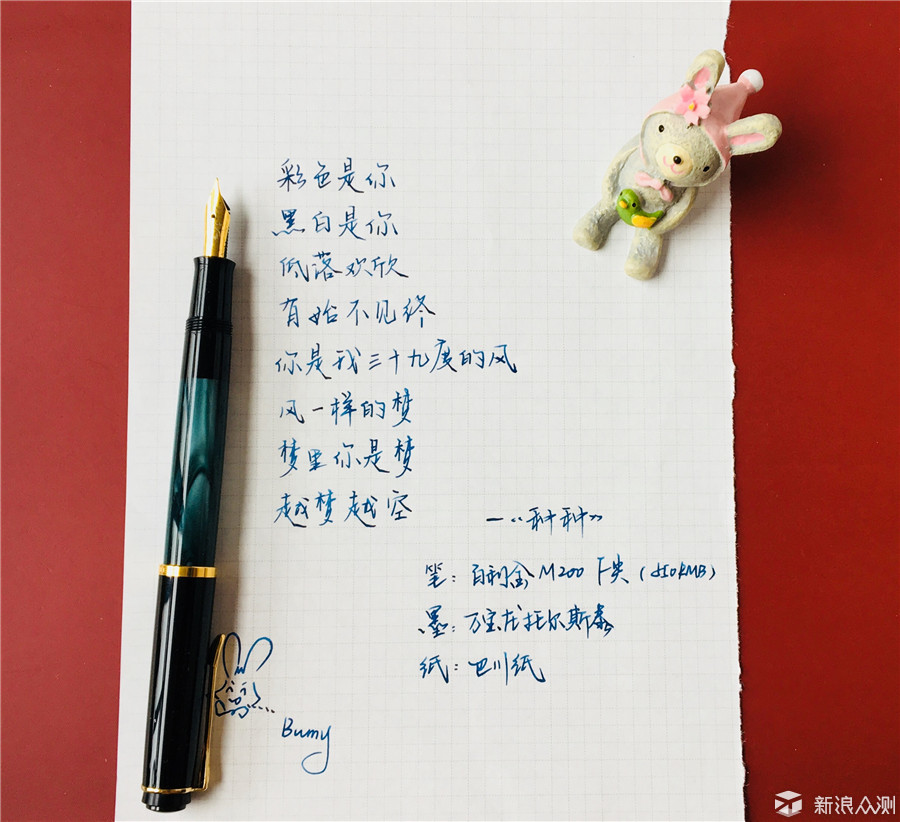 彩色是你
黑白是你
低落欢欣
有始不见终
你是我三十九度的风
风一样的梦
梦里你是梦
越梦越空
—《种种》
笔：百利金M200 F尖（550RMB）
墨：万宝龙托尔斯泰
纸：巴川纸
Bumy
新浪众测